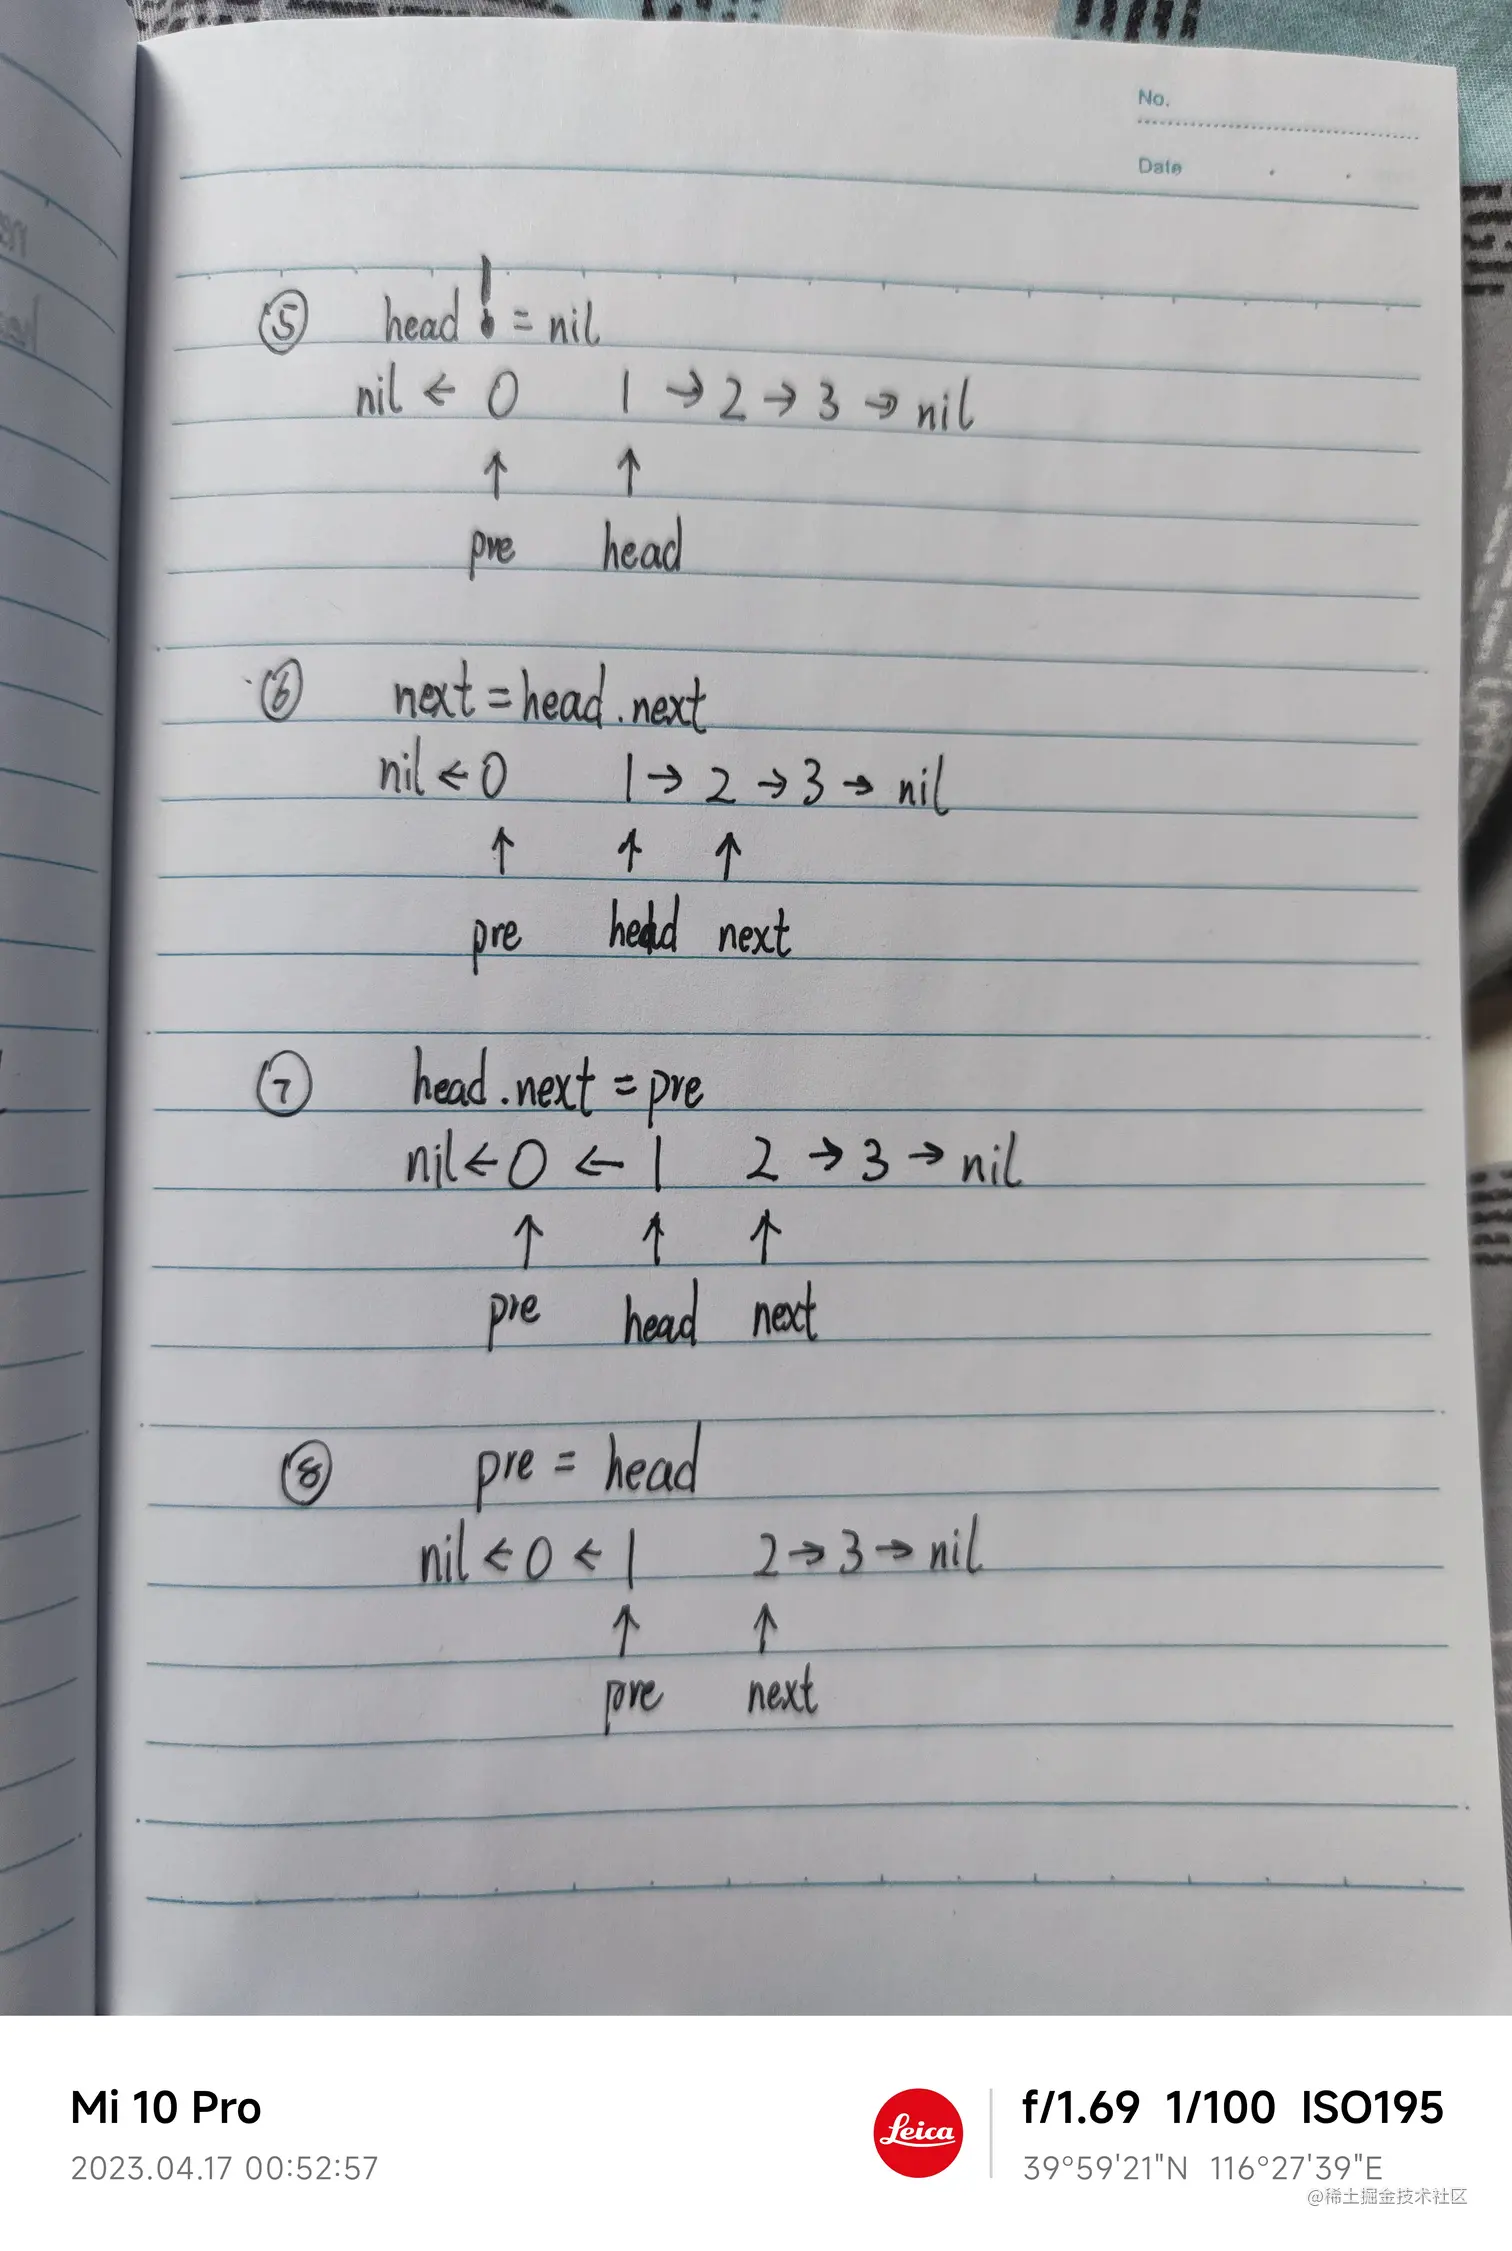 No.
Date
⑤ head != nil
nil ← 0 1 → 2 → 3 → nil
↑ ↑
pre head
⑥ next = head.next
nil ← 0 1 → 2 → 3 → nil
↑ ↑ ↑
pre head next
⑦ head.next = pre
nil ← 0 ← 1 2 → 3 → nil
↑ ↑ ↑
pre head next
⑧ pre = head
nil ← 0 ← 1 2 → 3 → nil
↑ ↑
pre next
Mi 10 Pro
2023.04.17 00:52:57
Leica
f/1.69 1/100 ISO195
39°59'21"N 116°27'39"E
@稀土掘金技术社区